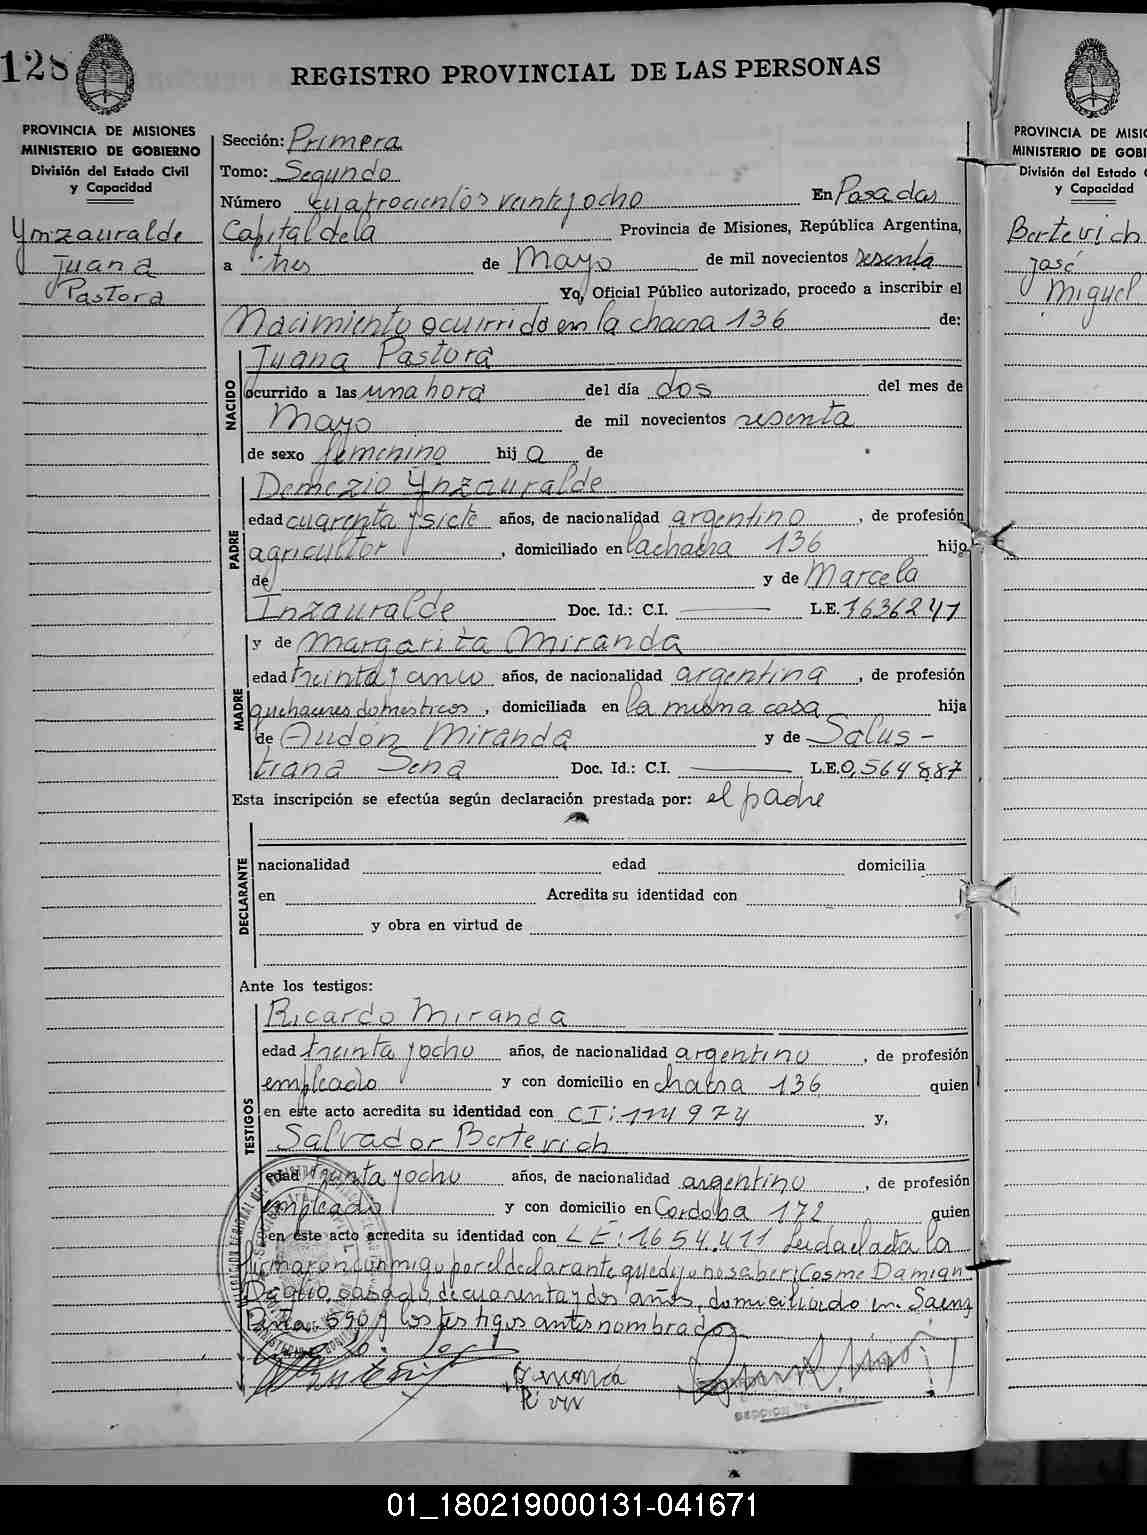 128
REGISTRO PROVINCIAL DE LAS PERSONAS
PROVINCIA DE MISIONES
MINISTERIO DE GOBIERNO
División del Estado Civil
y Capacidad
Ynzauralde
Juana
Pastora
Sección: Primera
Tomo: Segundo
Número cuatrocientos veintiocho En Posadas
Capital de la Provincia de Misiones, República Argentina,
a tres de Mayo de mil novecientos sesenta
Yo, Oficial Público autorizado, procedo a inscribir el
Nacimiento ocurrido en la chacra 136 de:
NACIDO
Juana Pastora
ocurrido a las una hora del día dos del mes de
Mayo de mil novecientos sesenta
de sexo femenino hij a de
PADRE
Demezio Ynzauralde
edad cuarenta y siete años, de nacionalidad argentino, de profesión
agricultor, domiciliado en la chacra 136 hijo
de y de Marcela
Inzauralde Doc. Id.: C.I. L.E. 1636241
MADRE
y de Margarita Miranda
edad treinta y cinco años, de nacionalidad argentina, de profesión
quehaceres domesticos, domiciliada en la misma casa hija
de Audón Miranda y de Salus-
trana Sena Doc. Id.: C.I. L.E. 0,564887
Esta inscripción se efectúa según declaración prestada por: el padre
DECLARANTE
nacionalidad edad domicilia
en Acredita su identidad con
y obra en virtud de
Ante los testigos:
TESTIGOS
Ricardo Miranda
edad treinta y ocho años, de nacionalidad argentino, de profesión
empleado y con domicilio en chacra 136 quien
en este acto acredita su identidad con CI: 114974 y,
Salvador Bertevich
edad treinta y ocho años, de nacionalidad argentino, de profesión
empleado y con domicilio en Cordoba 172 quien
en este acto acredita su identidad con LE: 1654.411 Leida el acta la
firmaron conmigo por el declarante que dijo no saber, Cosme Damian
Daglio, casado, de cuarenta y dos años, domiciliado en Saenz
Peña 590 y los testigos antes nombrados
PROVINCIA DE MISIO
MINISTERIO DE GOBI
División del Estado C
y Capacidad
Bertevich
José
Miguel
01_180219000131-041671